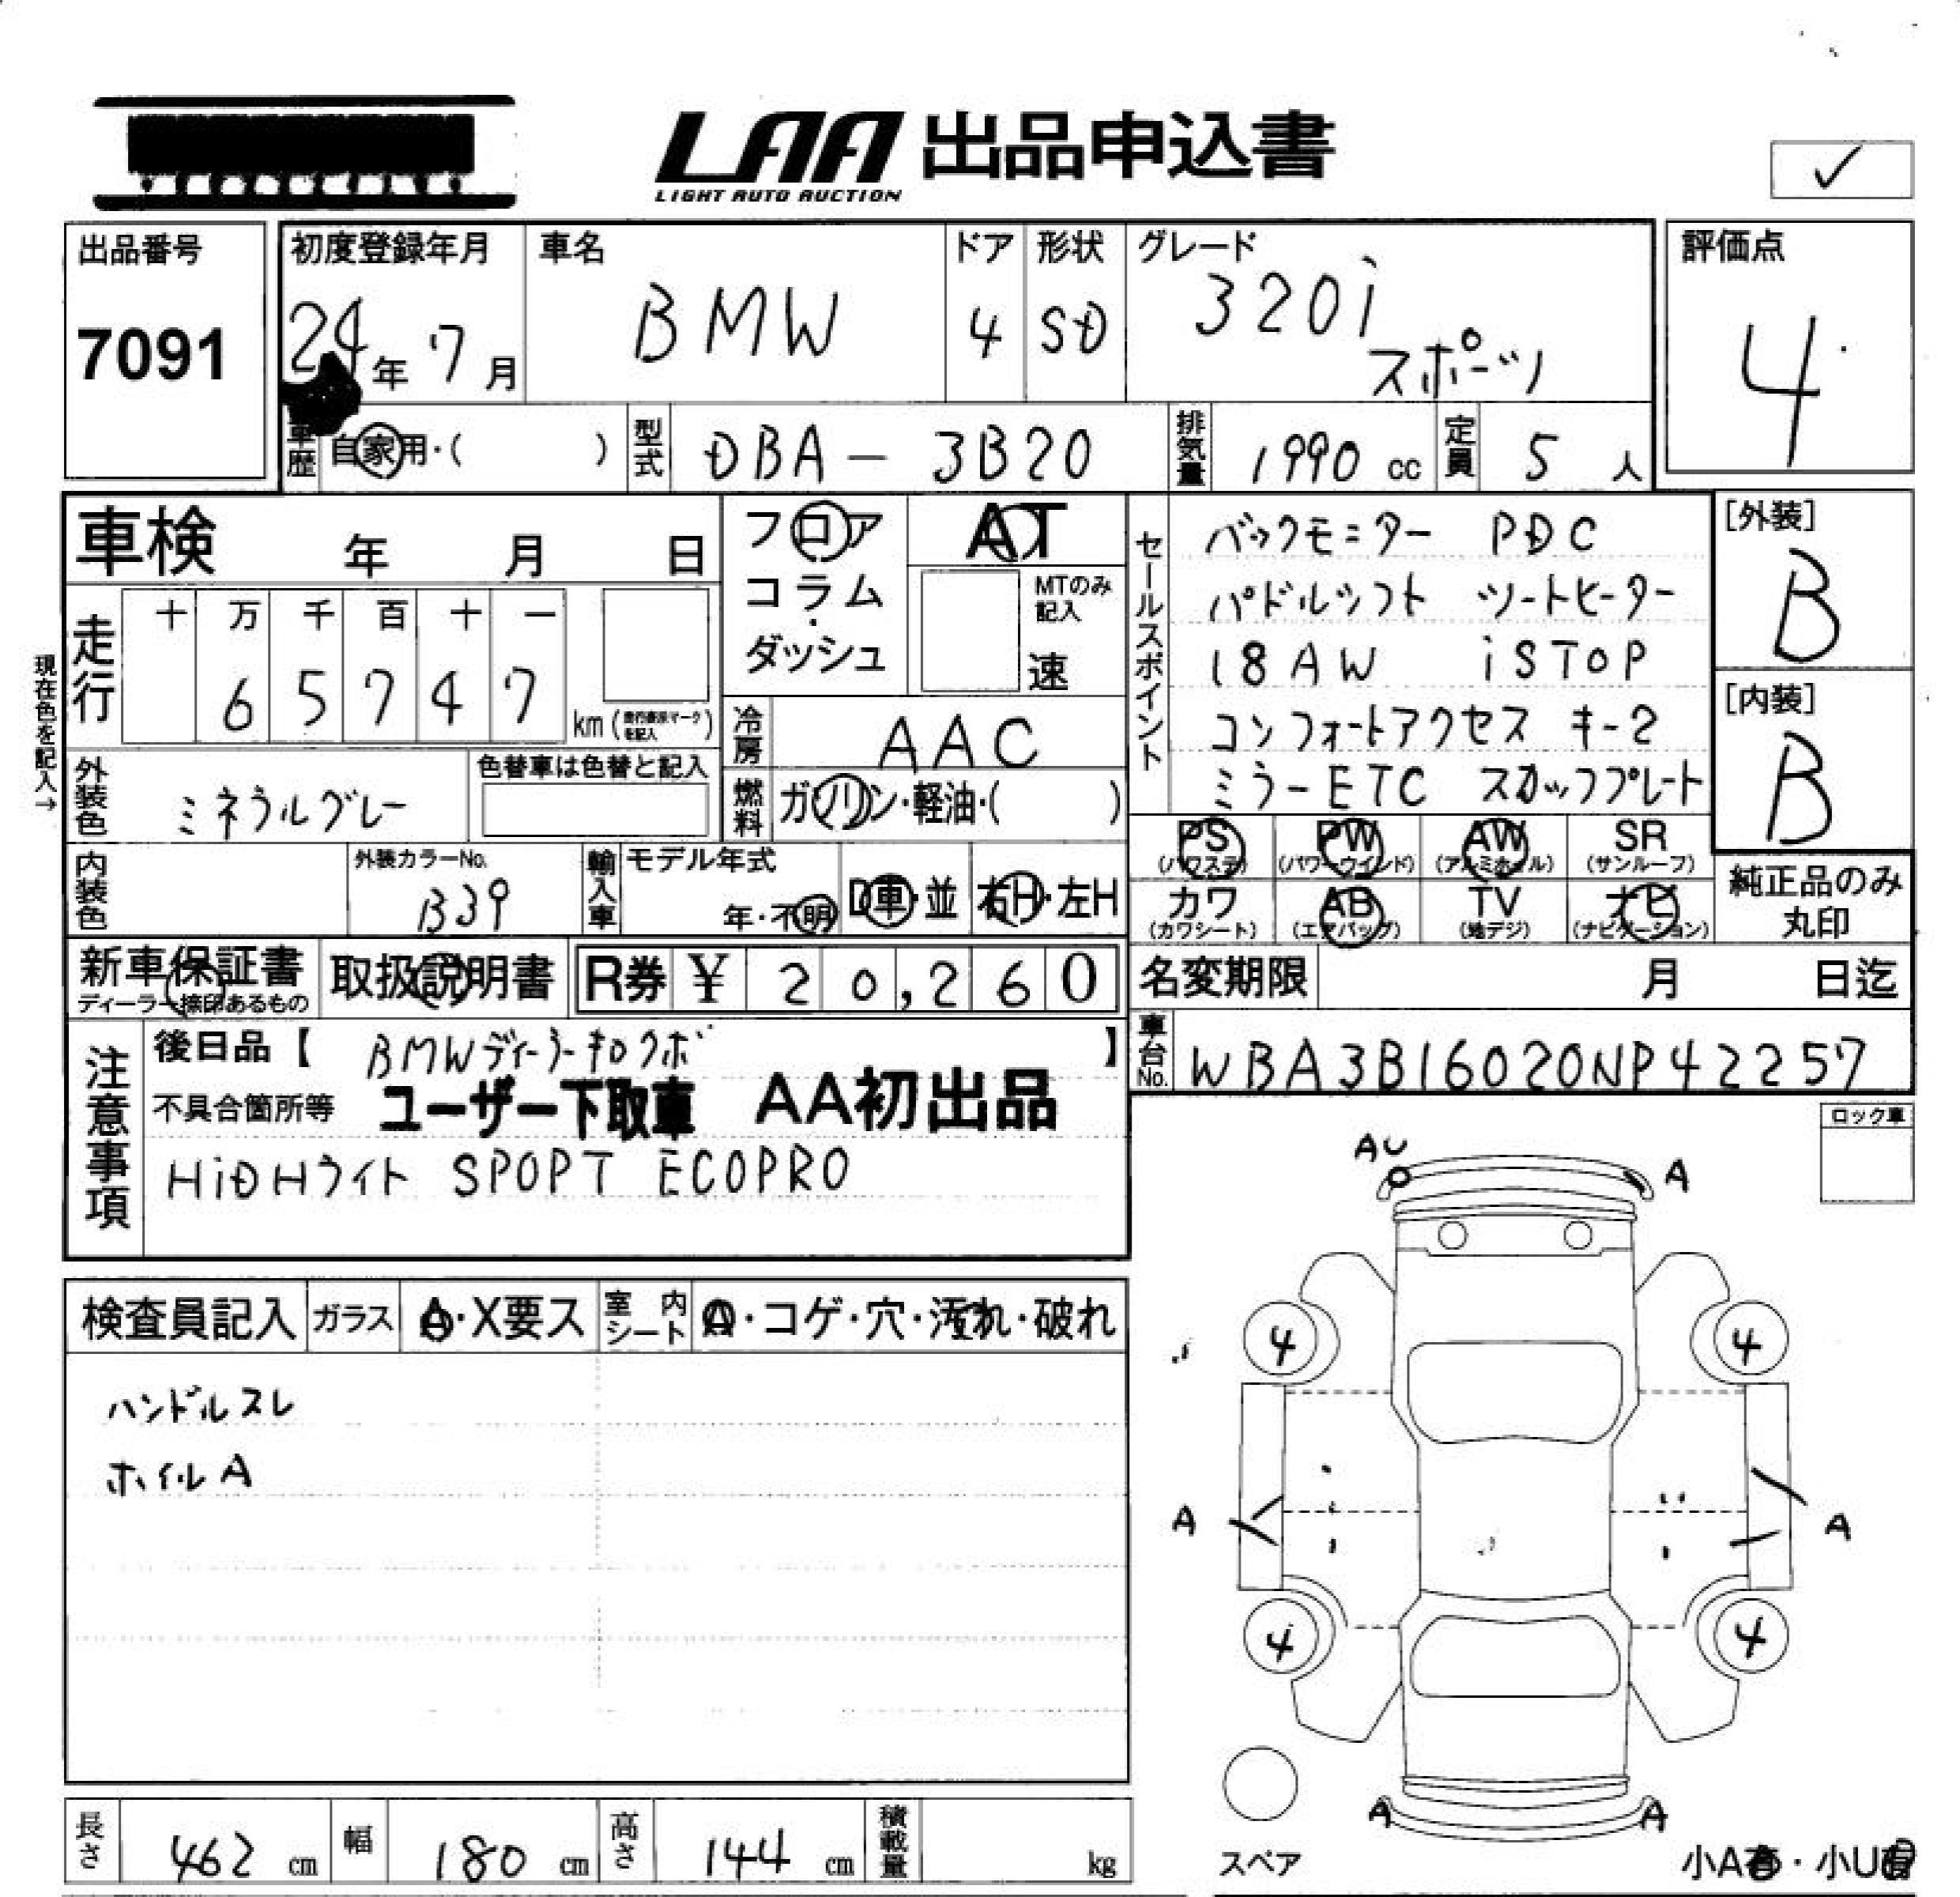 LAA 出品申込書
LIGHT AUTO AUCTION
✓
出品番号 7091
初度登録年月 24年 7月
車名 BMW
ドア 4
形状 SD
グレード 320i
スポーツ
評価点 4
車歴 自家用・( )
型式 DBA-3B20
排気量 1990 cc
定員 5 人
車検 年 月 日
フロア
コラム・
ダッシュ
AT
MTのみ記入
速
セールスポイント
バックモニター PDC
パドルシフト シートヒーター
18AW iSTOP
コンフォートアクセス キー2
ミラーETC スカッフプレート
[外装] B
[内装] B
現在色を記入→
走行
十 万 千 百 十 一
6 5 7 4 7 km(走行表示マークを記入)
冷房 AAC
外装色 ミネラルグレー
色替車は色替と記入
燃料 ガソリン・軽油・( )
内装色
外装カラーNo. B39
輸入車 モデル年式 年・不明
D車・並 右H・左H
PS (パワステ) PW (パワーウインド) AW (アルミホイル) SR (サンルーフ)
カワ (カワシート) AB (エアバッグ) TV (地デジ) ナビ (ナビゲーション)
純正品のみ
丸印
新車保証書
ディーラー捺印あるもの
取扱説明書
R券 ¥ 20,260
名変期限 月 日迄
車台No. WBA3B16020NP42257
注意事項
後日品【 BMWディーラーキロクボ 】
不具合箇所等 ユーザー下取車 AA初出品
HiDHライト SPOPT ECOPRO
ロック車
AU A
検査員記入 ガラス A・X要ス 室内シート ・コゲ・穴・汚れ・破れ
ハンドルスレ
ホイルA
4 4
A A
4 4
A A
スペア
小A ・小U
長さ 462 cm 幅 180 cm 高さ 144 cm 積載量 kg